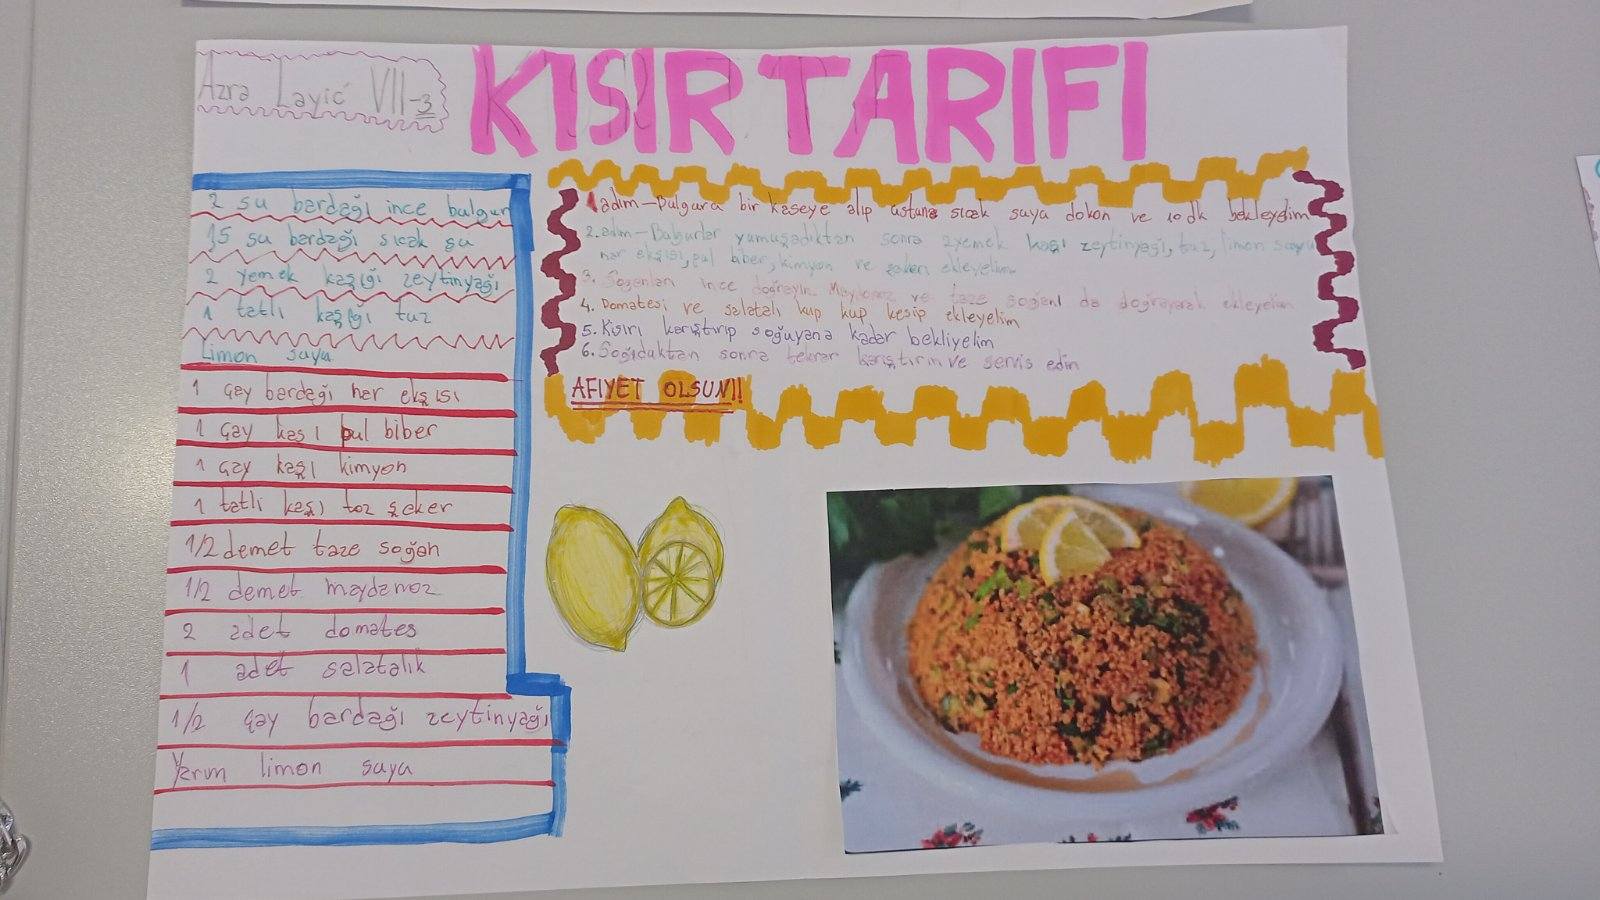 Azra Layić VII-3
KISIR TARIFI
2 su bardağı ince bulgur
1,5 su bardağı sıcak su
2 yemek kaşığı zeytinyağı
1 tatlı kaşığı tuz
Limon suyu
1 çay bardağı nar ekşısı
1 çay kaşı pul biber
1 çay kaşı kimyon
1 tatlı kaşı toz şeker
1/2 demet taze soğan
1/2 demet maydanoz
2 adet domates
1 adet salatalık
1/2 çay bardağı zeytinyağı
Yarım limon suyu
1 adım-Bulguru bir kaseye alıp üstune sıcak suyu dokon ve 10 dk bekleyelim
2.adım-Bulgurlar yumuşadıktan sonra 2yemek kaşı zeytinyaği, tuz, limon suyu
nar ekşısı, pul biber, kimyon ve şekeri ekleyelim
3. Soğanları ince doğrayın. Maydanoz ve taze soğanı da doğrayarak ekleyelim
4. Domatesi ve salatalı kup kup kesip ekleyelim
5. Kisırı karıştırıp soğuyana kadar bekliyelim
6. Soğıduktan sonra tekrar karıştırın ve servis edin
AFIYET OLSUN!!